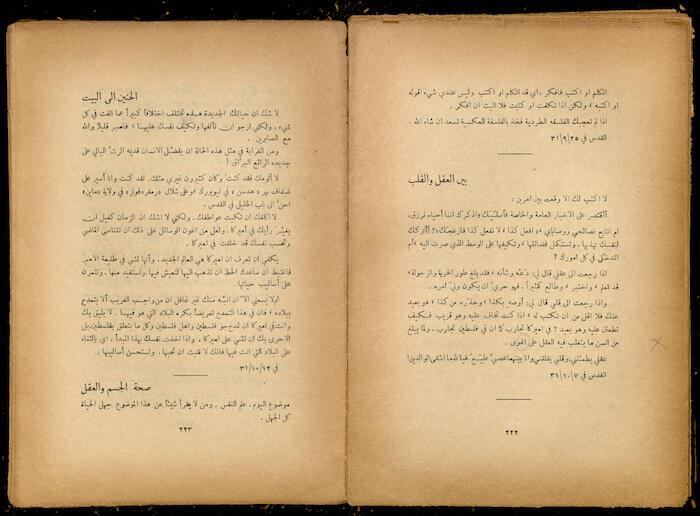 اتكلم او اكتب فافكر ، اي قد اتكلم او اكتب وليس عندي شيء اقوله
او اكتبه ، ولكن اذا تكلمت او كتبت فلا البث ان افكر .
اذا لم تعجبك الفلسفة الطردية فخذ بالفلسفة العكسية تسعد ان شاء الله .
القدس في ٢٥/٩/٣١
بين العقل والقلب
لا اكتب لك الا وقعت بين امرين :
أأقتصر على الاخبار العامة والخاصة فأسلّيك واذكرك اننا أحياء نرزق،
ام اتابع نصائحي ووصاياي «افعل كذا» لا تفعل كذا فازعجك؟ أأتركك
لنفسك تهذبها ، وتستكمل فضائلها وتكيفها على الوسط الذي صرت اليه أم
اتدخل في كل امورك ؟
اذا رجعت الى عقلي قال لي: دَعْه وشأنه ، فقد بلغ طور الحرية والرجولة،
قد تعلم ، واختبر ، وطالع كثيراً ، فهو حريّ ان يكون ولي امره .
واذا رجعت الى قلبي قال لي: أوصه بكذا ، وحذره من كذا ، هو بعيد
عنك فلا اقل من ان تكتب له ، اذا كنت تخاف عليه وهو قريب فكيف
تطمئن عليه وهو بعيد ؟ في اميركا تجارب كما ان في فلسطين تجارب، ولما يبلغ
من السن ما يتغلب فيه العقل على الهوى .
عقلي يطمئنني، وقلبي يقلقني وانا بينهما عصبيّ فيا لله ما اشقى الوالدين!
القدس في ٧/١٠/٣١
٢٢٢
الحنين الى البيت
لا شك ان حياتك الجديدة هذه تختلف اختلافاً كبيراً عما الفت في كل
شيء ، ولكني ارجو ان تألفها وتكيف نفسك عليها ، فاصبر قليلا والله
مع الصابرين .
ومن الغرابة في مثل هذه الحالة ان يفضل الانسان قديمه الرث البالي على
جديده الرائع البراق !
لا ألومك فقد كنت وكان كثيرون غيري مثلك. لقد كنت وانا أسير على
ضفاف نهر «هدسن» في نيويورك «وعلى شلال «رمفردفولز» في ولاية «ماين»
احنّ الى باب الخليل في القدس .
لا اكلفك ان تكبت عواطفك ، ولكني لا اشك ان الزمان كفيل ان
يغيّر رأيك في أميركا ، ولعل من اعون الوسائل على ذلك ان تتناسى الماضي
وتحسب نفسك قد خلقت في اميركا .
يكفي ان تعرف ان اميركا هي العالم الجديد ، وأنها تمشي في طليعة الامم،
فاغتبط ان ساعدك الحظ ان تذهب اليها لتعيش فيها، وتستفيد منها، وتتمرن
على أساليب حياتها .
ثم لا يسعني الا ان انبّه منك غير غافل ان من واجب الغريب ألا يتمدح
ببلاده ، فان في هذا التمدح تعريضاً بكره البلاد التي هو فيها . لا يليق بك
وانت في اميركا ان تمدح جو فلسطين واهل فلسطين وكل ما يتعلق بفلسطين، بل
الاحرى بك ان تثني على اميركا ، واذا اخذت نفسك بهذا المبدأ ، اي بالثناء
على البلاد التي انت فيها فانك لا تلبث ان تحبها ، وتستحسن أساليبها .
في ١٢/١٠/٣١
صحة الجسم والعقل
موضوع اليوم ، علم النفس . ومن لا يقرأ شيئاً عن هذا الموضوع جهل الحياة
كل الجهل .
٢٢٣